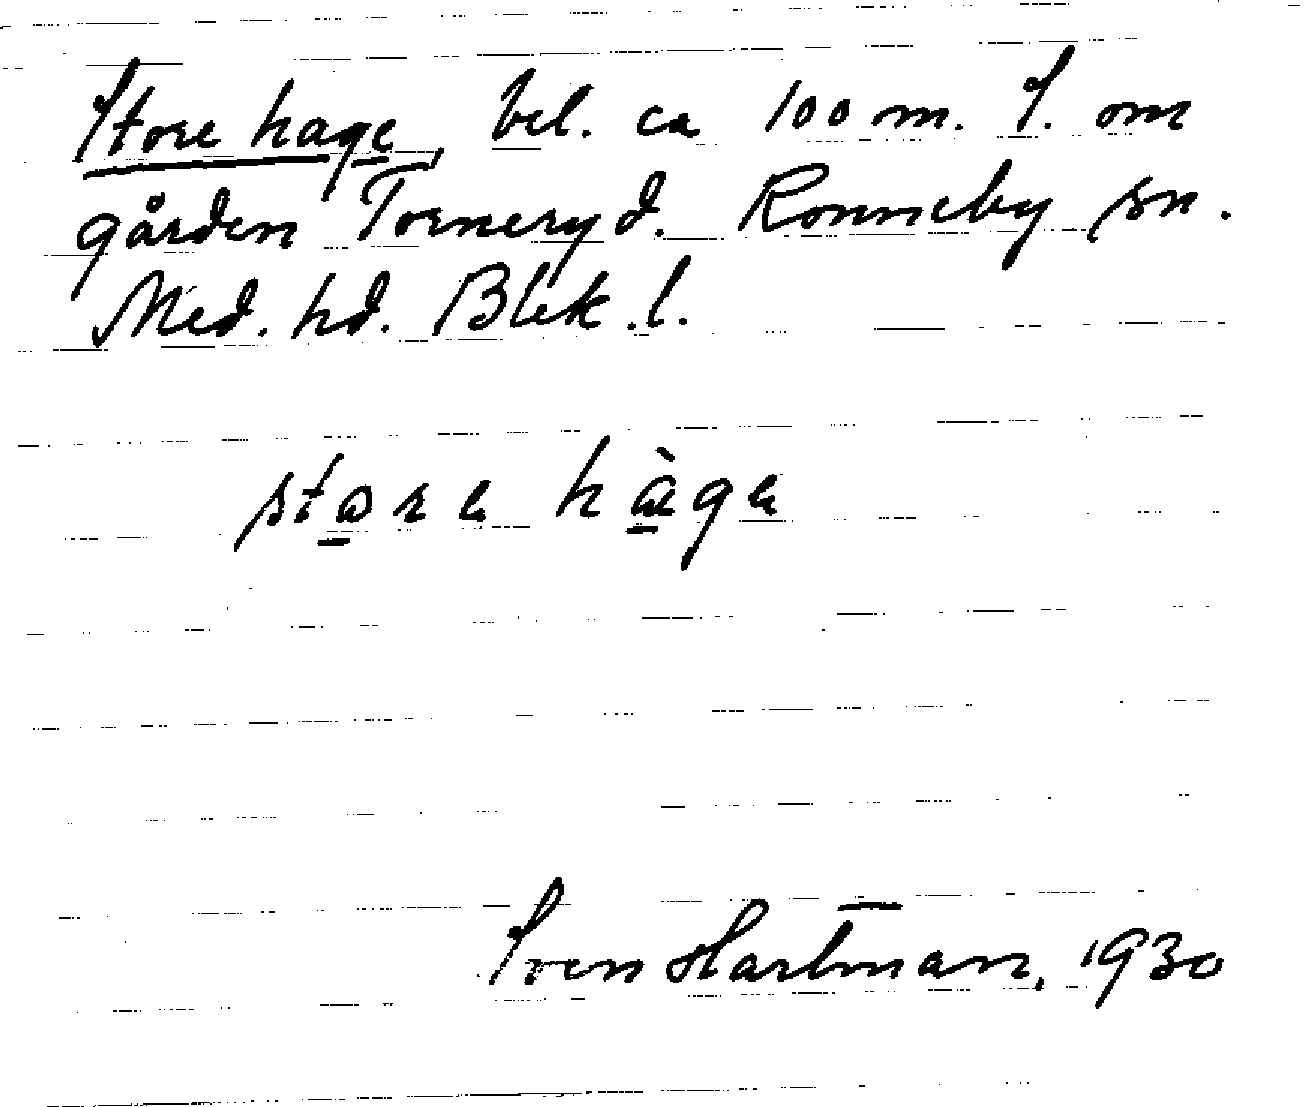 Store hage, bel. ca 100 m. S. om
gården Torneryd. Ronneby sn.
Med. hd. Blek. l.
store hàge
Sven Hartman, 1930